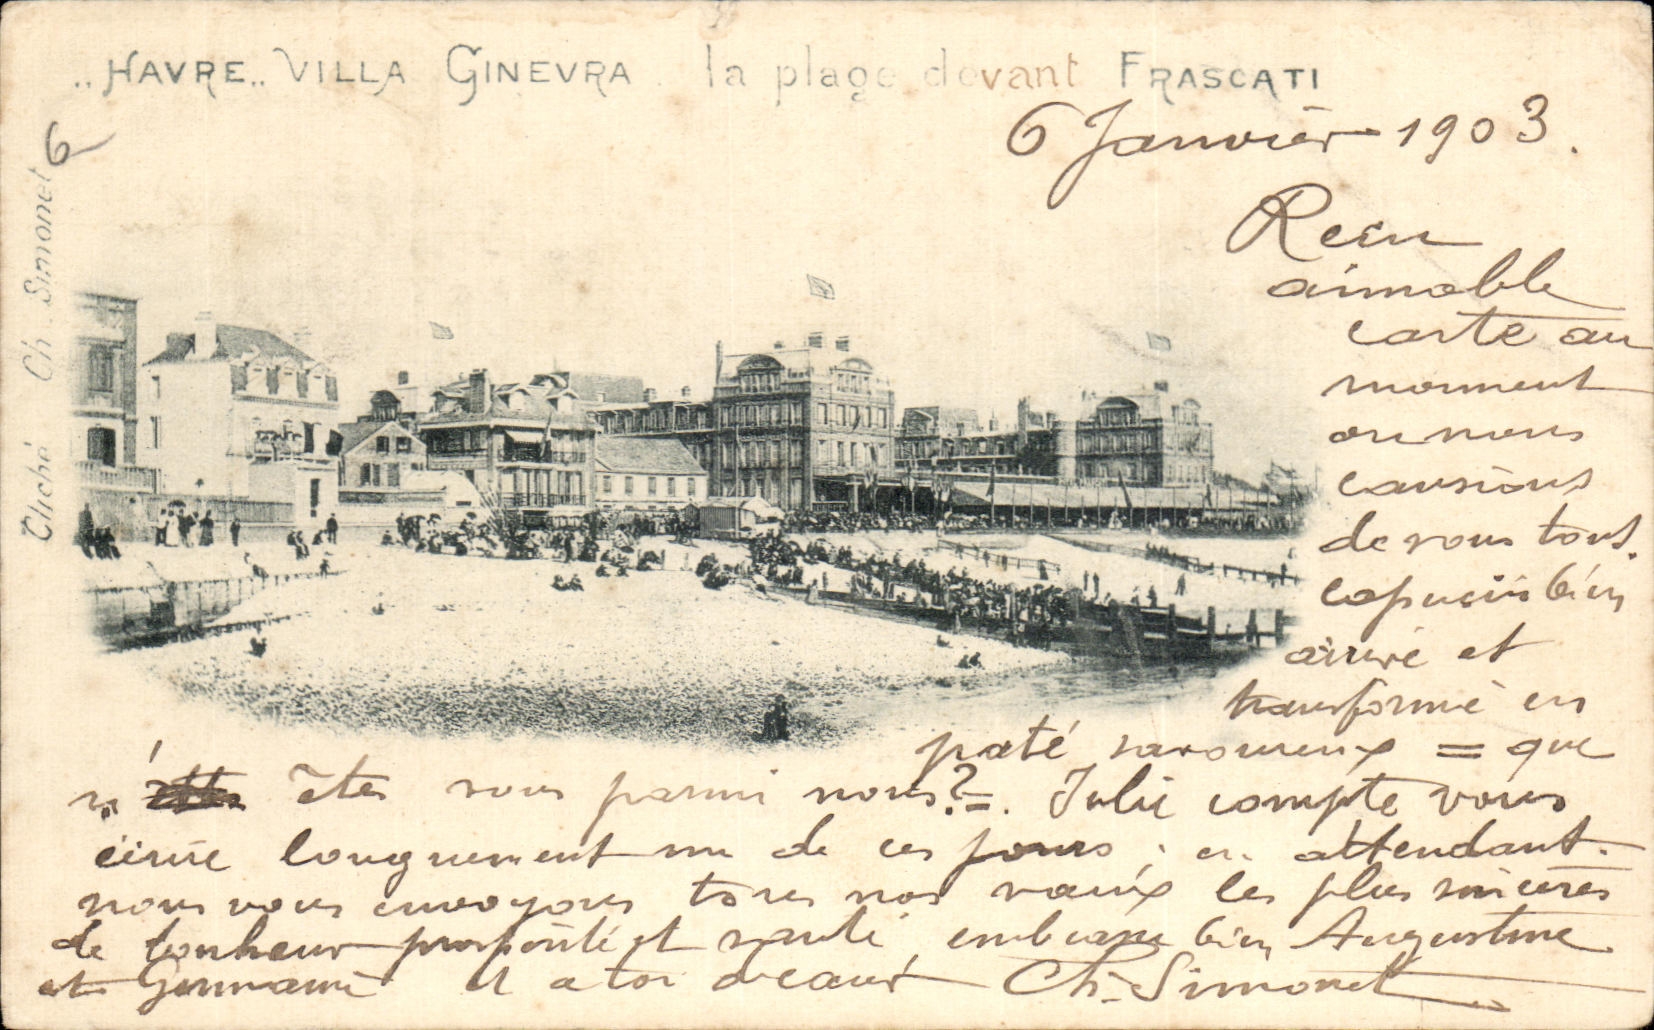 „HAVRE„ VILLA GINEVRA . la plage devant FRASCATI
6
Cliché Ch. Simonet
6 Janvier 1903.
Reçu
aimable
carte au
moment
où nous
causions
de vous tous.
bien
arrivé et
transformé en
paté savoureux = que
n' êtes vous parmi nous? =. Julie compte vous
écrire longuement un de ces jours ; en attendant.
nous vous envoyons tous nos vœux les plus sincères
de bonheur prospérité et santé embrasse bien Augustine
et Germaine et a toi Ch. Simonet